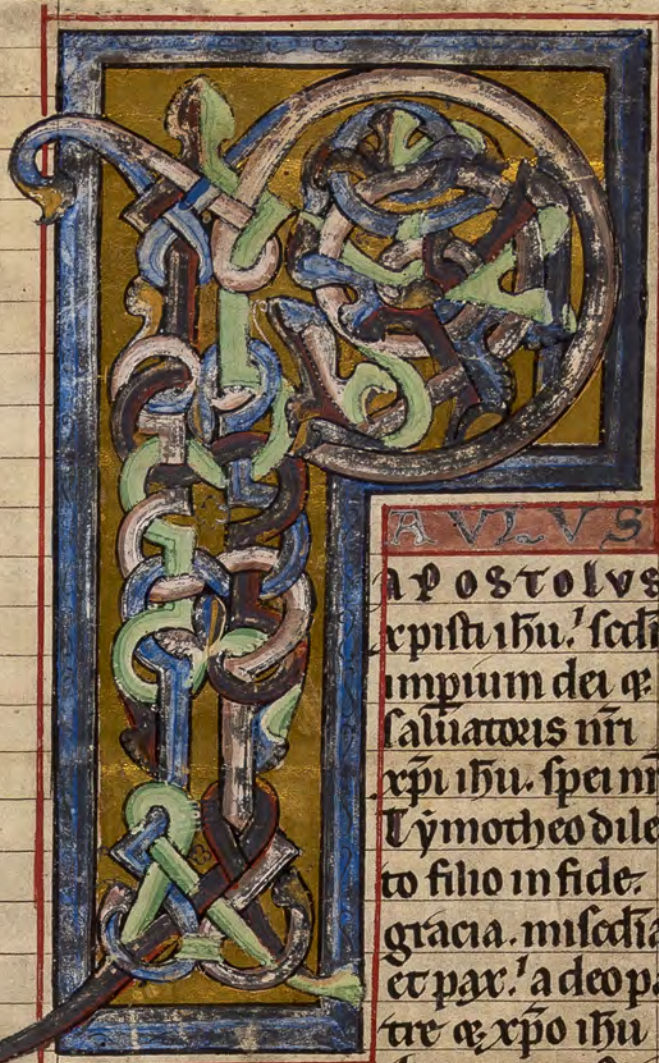 P AULUS
apostolus
xpisti ihu. scdm
impium dei &
saluatoris nri
xpi ihu. spei nr
Tymotheo dile
to filio in fide.
gracia. miscdia
et pax. a deo pa
tre & xpo ihu